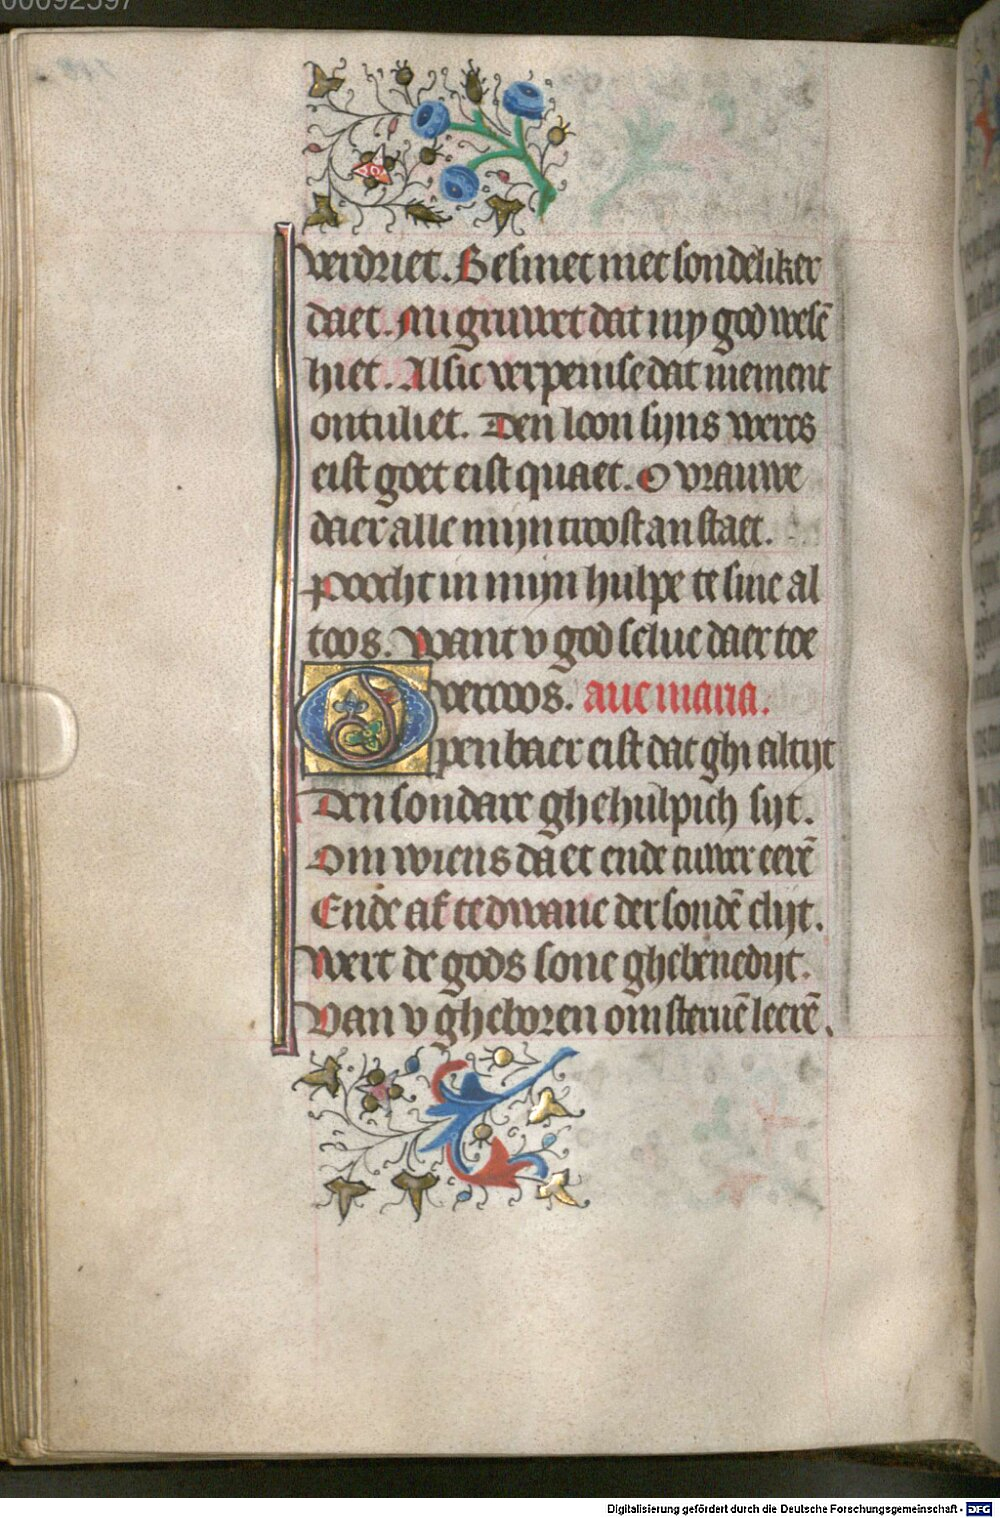 00092597
verdriet. Besmet met sondeliker
daet. Mi gruwet dat my god wesē
hiet. Als ic verpeinse dat niement
ontuliet. Den loon sijns wercs
eist goet eist quaet. O vrauwe
daer alle mijn troost an staet.
Poocht in mijn hulpe te sine al
toos. Want v god selue daer toe
vercoos. aue maria.
Openbaer eist dat ghi altijt
Den sondare ghehulpich sijt.
Om wiens daet ende tuwer eerē
Ende af te dwane der sondē clijt.
Wert de gods sone ghebenedijt.
Van v gheboren om steruē leerē.
Digitalisierung gefördert durch die Deutsche Forschungsgemeinschaft - DFG